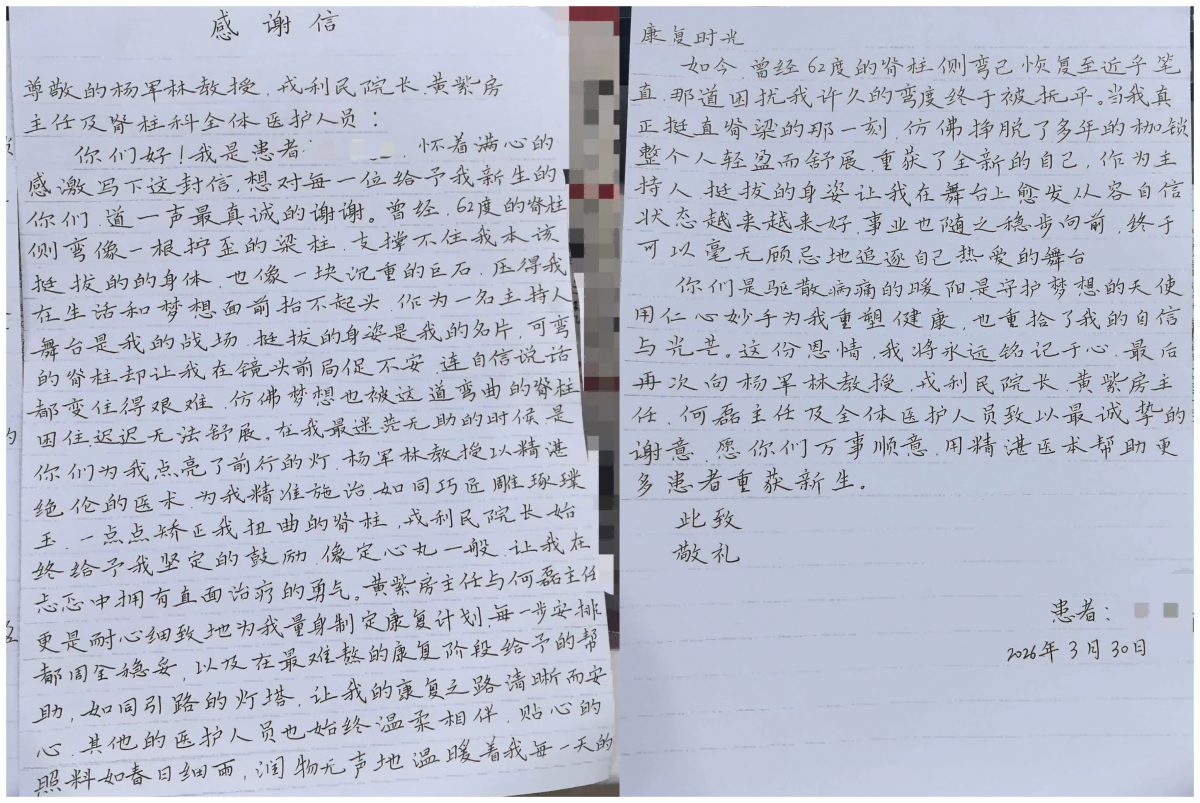 感谢信
尊敬的杨军林教授、戎利民院长、黄紫房
主任及脊柱科全体医护人员：
你们好！我是患者 ，怀着满心的
感激写下这封信，想对每一位给予我新生的
你们，道一声最真诚的谢谢。曾经，62度的脊柱
侧弯像一根拧歪的梁柱，支撑不住我本该
挺拔的的身体，也像一块沉重的巨石，压得我
在生活和梦想面前抬不起头，作为一名主持人
舞台是我的战场，挺拔的身姿是我的名片，可弯
的脊柱却让我在镜头前局促不安，连自信说话
都变住得艰难，仿佛梦想也被这道弯曲的脊柱
困住迟迟无法舒展。在我最迷茫无助的时候是
你们为我点亮了前行的灯，杨军林教授以精湛
绝伦的医术，为我精准施治，如同巧匠雕琢璞
玉，一点点矫正我扭曲的脊柱，戎利民院长始
终给予我坚定的鼓励，像定心丸一般，让我在
忐忑中拥有直面治疗的勇气。黄紫房主任与何磊主任
更是耐心细致地为我量身制定康复计划，每一步安排
都周全稳妥，以及在最难熬的康复阶段给予的帮
助，如同引路的灯塔，让我的康复之路清晰而安
心，其他的医护人员也始终温柔相伴，贴心的
照料如春日细雨，润物无声地温暖着我每一天的
康复时光
如今，曾经62度的脊柱侧弯已恢复至近乎笔
直，那道困扰我许久的弯度终于被抚平。当我真
正挺直脊梁的那一刻，仿佛挣脱了多年的枷锁
整个人轻盈而舒展，重获了全新的自己，作为主
持人，挺拔的身姿让我在舞台上愈发从容自信
状态越来越来好，事业也随之稳步向前，终于
可以毫无顾忌地追逐自己热爱的舞台
你们是驱散病痛的暖阳，是守护梦想的天使
用仁心妙手为我重塑健康，也重拾了我的自信
与光芒。这份恩情，我将永远铭记于心，最后
再次向杨军林教授、戎利民院长、黄紫房主
任、何磊主任及全体医护人员致以最诚挚的
谢意，愿你们万事顺意，用精湛医术帮助更
多患者重获新生。
此致
敬礼
患者：
2026年3月30日